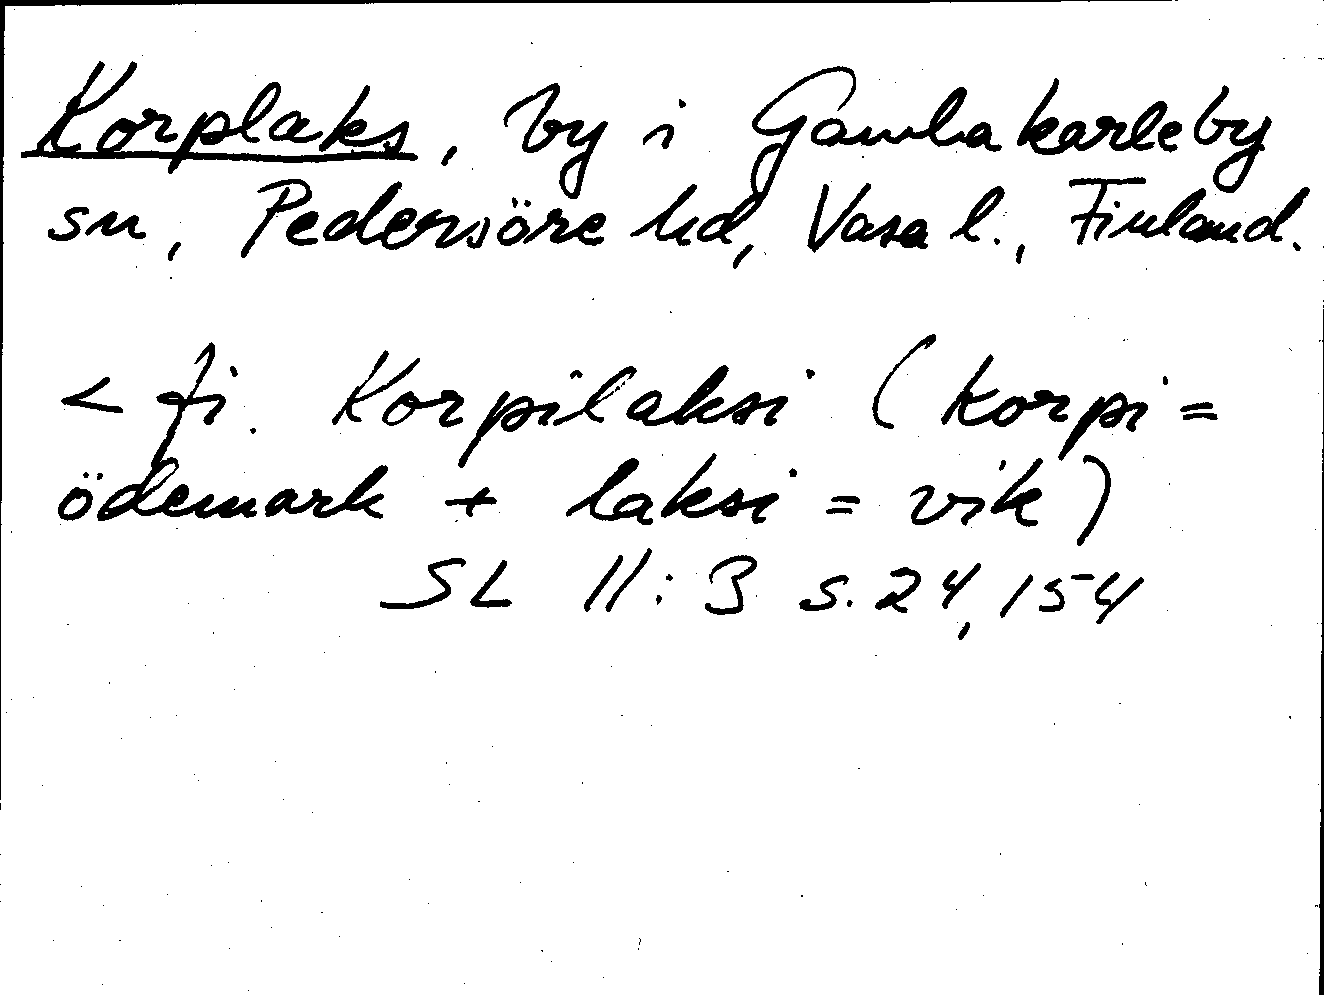 Korplaks, by i Gamlakarleby
sn, Pedersöre hd, Vasa l., Finland.
< fi. Korpilaksi (korpi =
ödemark + laksi = vik)
SL II:3 s. 24, 154